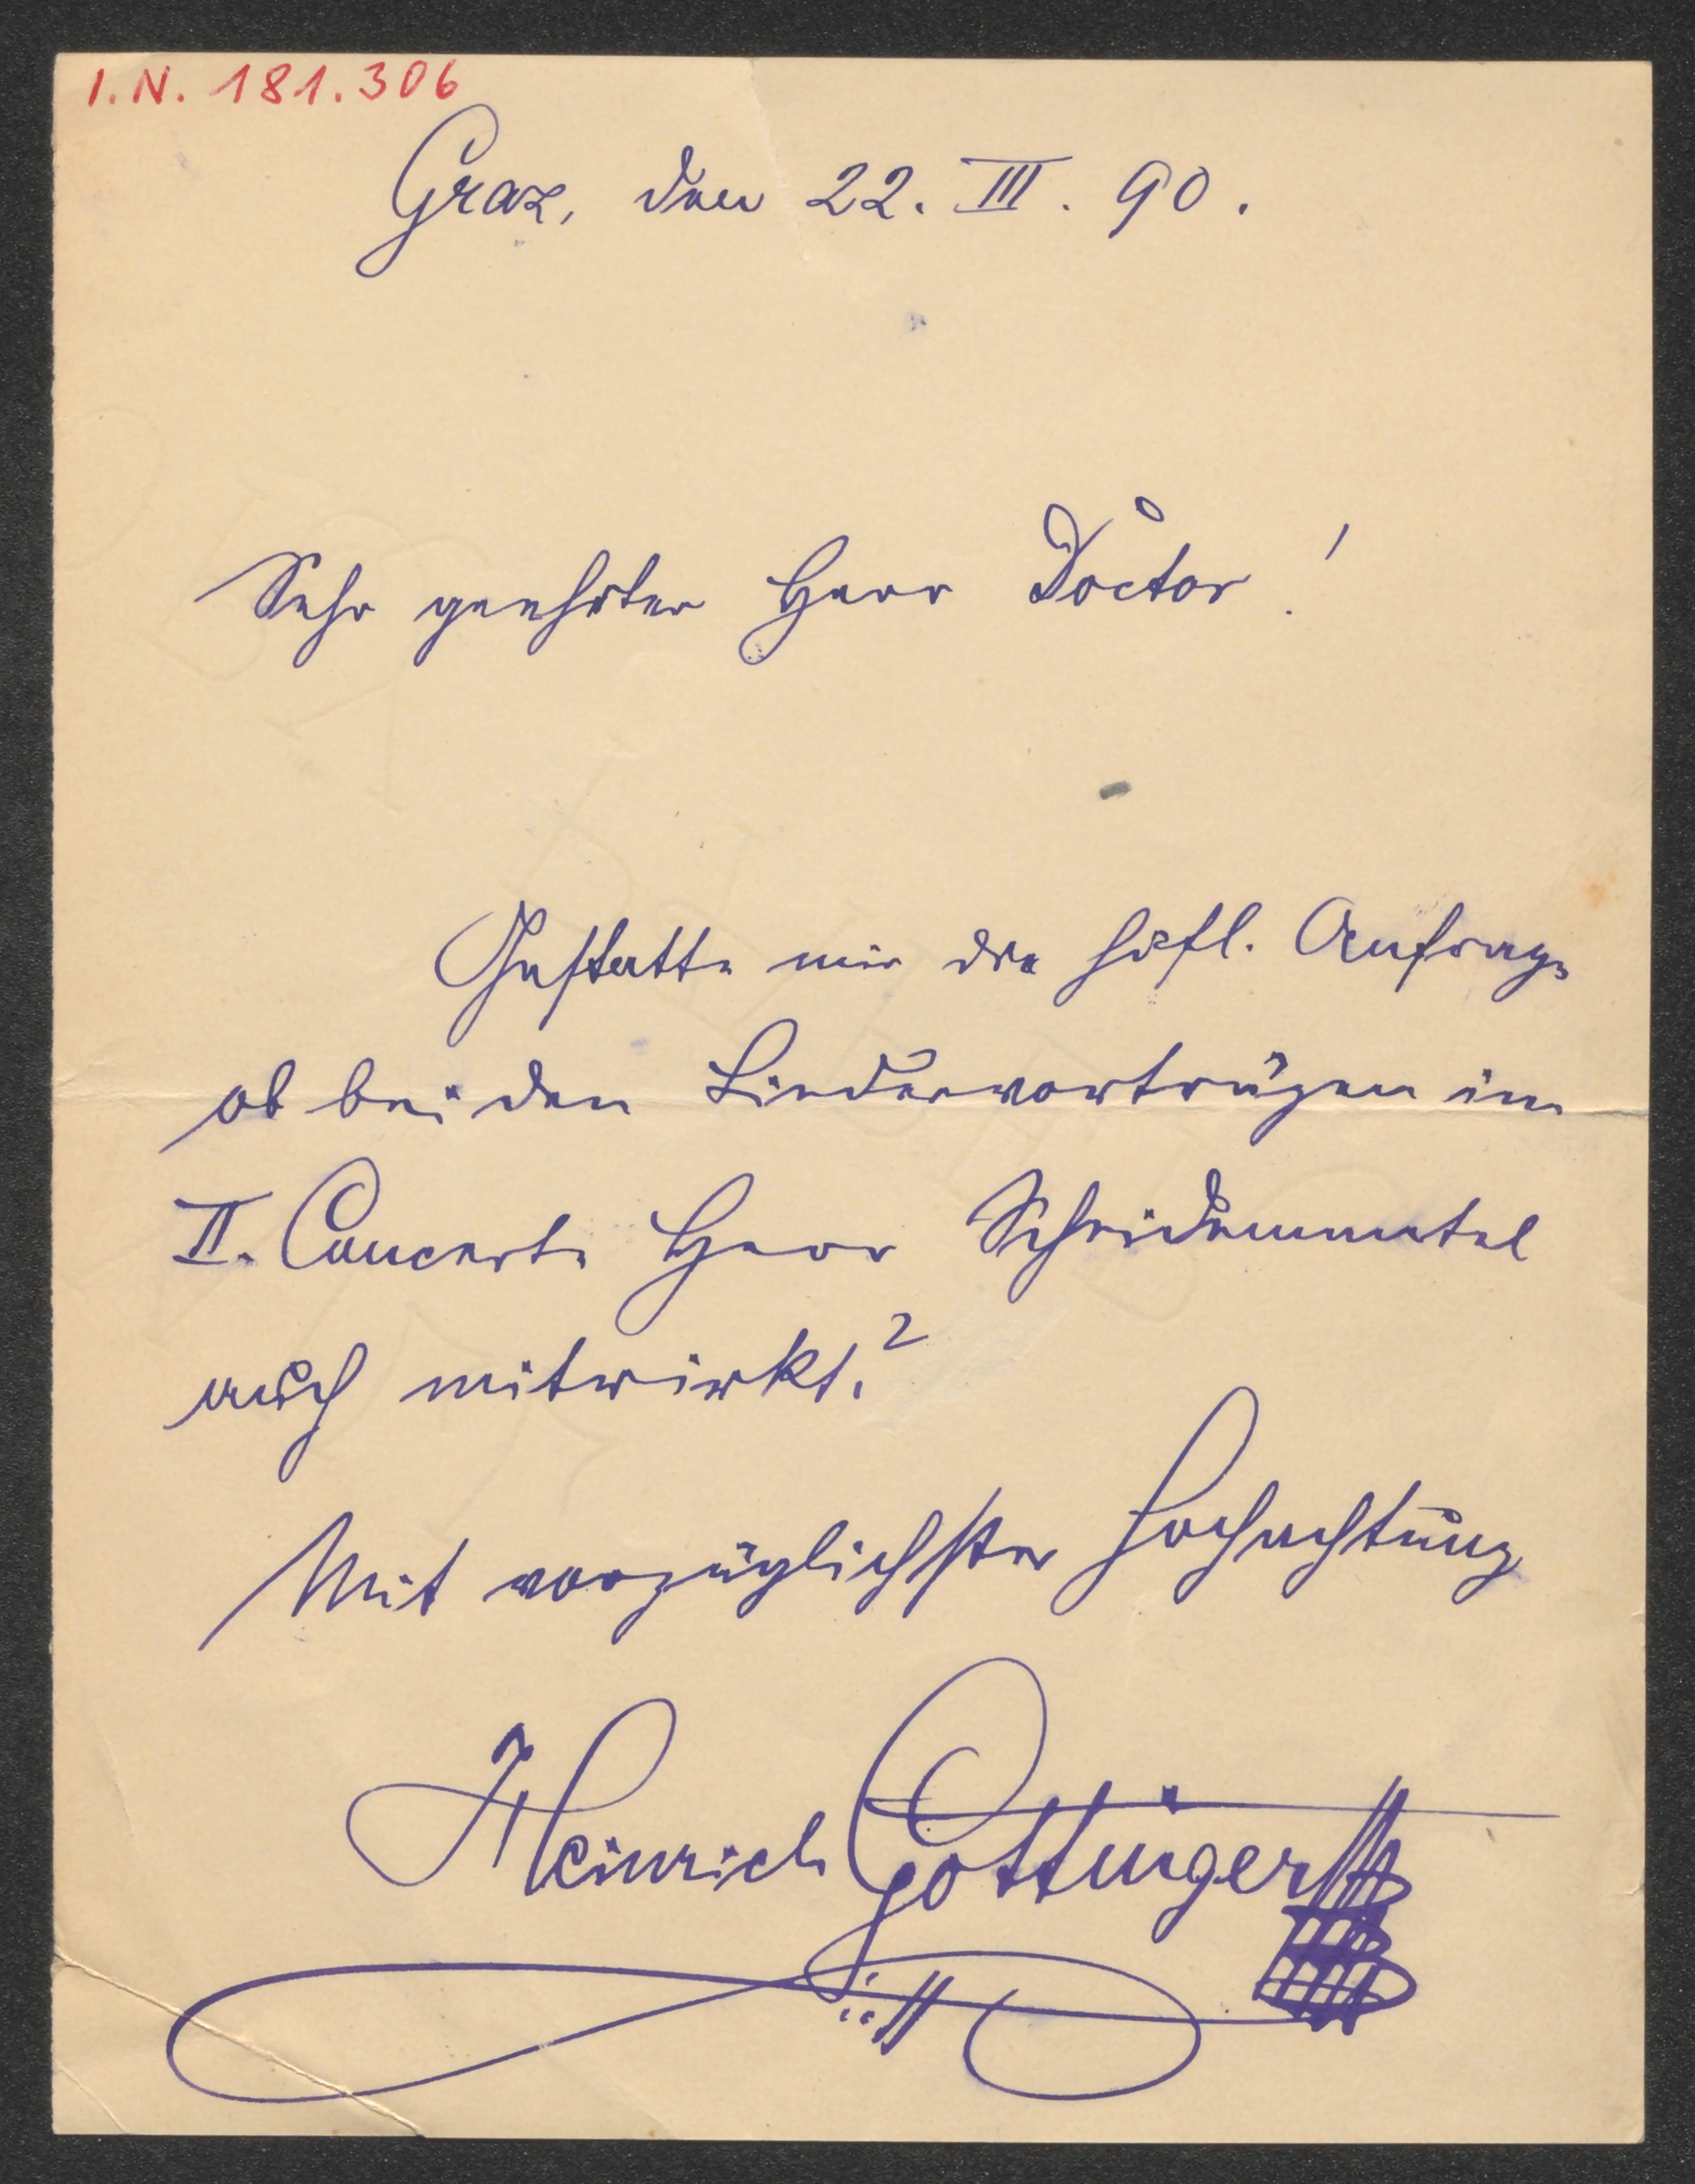 I.N. 181.306
Graz, den 22. III. 90.
Sehr geehrter Herr Doctor!
Gestatte mir die höfl. Anfrage
ob bei den Liedervorträgen im
II. Concerte Herr Scheidemantel
auch mitwirkt.?
Mit vorzüglichster Hochachtung
Heinrich Göttinger